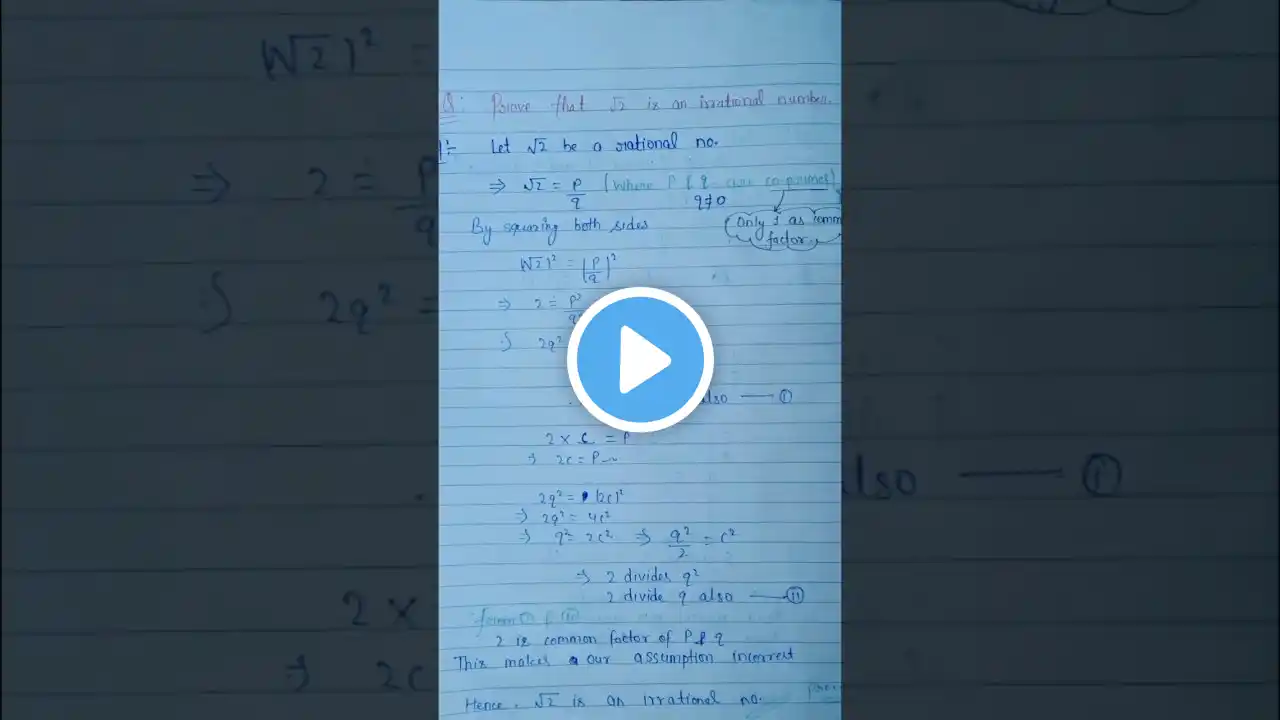 Q: Prove that √2 is an irrational number.
Let √2 be a rational no.
⇒ √2 = P/q (Where P & q are co primes)
q≠0
Only 1 as comm
factor
By squaring both sides
(√2)² = (P/q)²
⇒ 2 = P²/q²
2q²
also — (i)
2 × c = P
⇒ 2c = P
2q² = (2c)²
⇒ 2q² = 4c²
⇒ q² = 2c² ⇒ q²/2 = c²
⇒ 2 divides q²
2 divide q also — (ii)
from (i) & (ii)
2 is common factor of P & q
This makes our assumption incorrect
Hence, √2 is an irrational no.